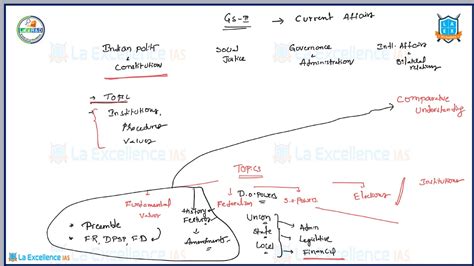 GS-II → Current Affairs
Indian polity
+
Constitution
Social
Justice
Governance
+
Administration
Intl. Affairs
+
Bilateral
relations
→ Topic
Institutions,
Procedure
Values
Comparative
Understanding
La Excellence IAS
La Excellence IAS
La Excellence IAS
La Excellence IAS
TOPICS
Fundamental
Values
History
Features
Amendments
Federalism
D.O.Powers
S.O.Powers
Elections
Institutions
Preamble
FR, DPSP, FD
Union
State
Local
Admin
Legislative
Financial
La Excellence IAS